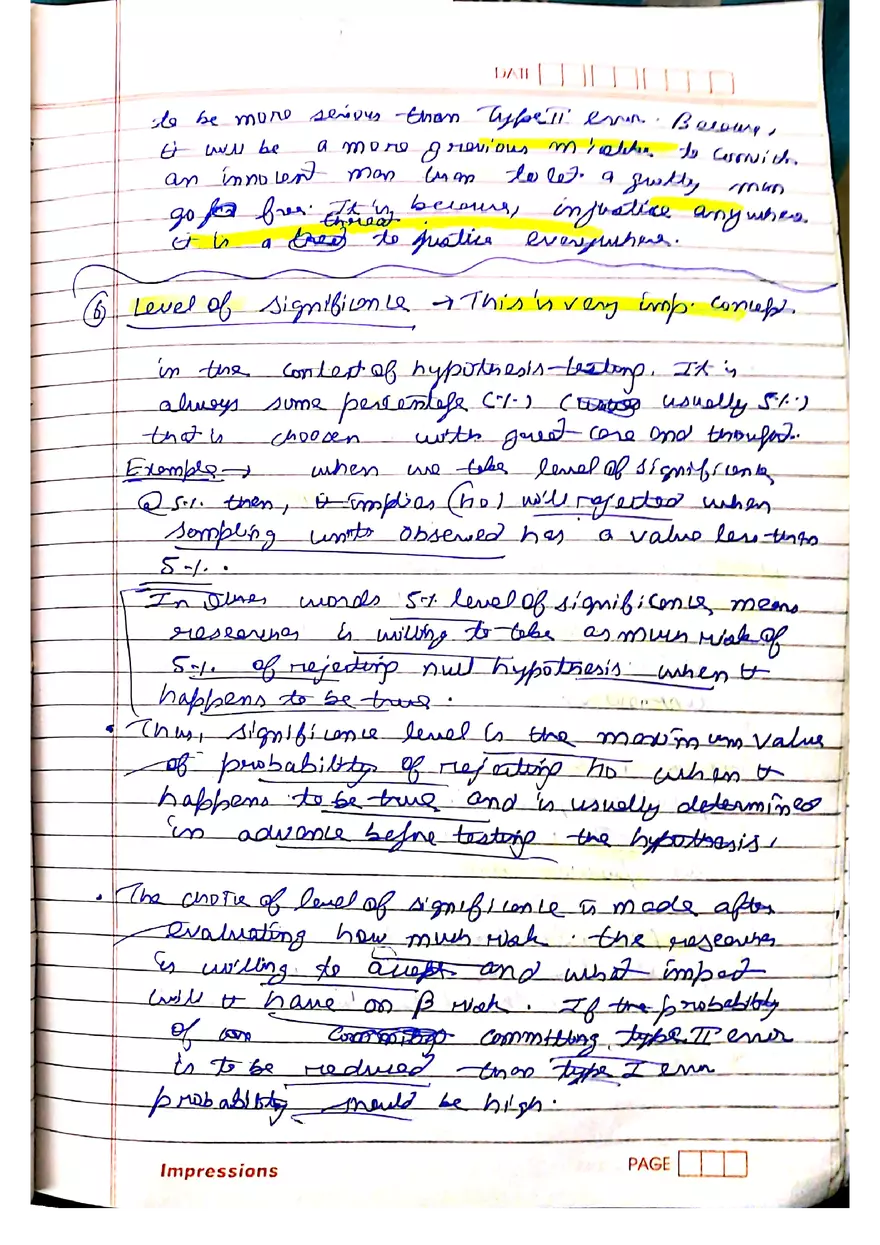 DATE
to be more serious than Type II error. Because,
it will be a more grevious mistake to convict
an innocent man than to let a guilty man
go free. It is because, injustice anywhere
threat
it is a to justice everywhere.
6 Level of significance → This is very imp. concept.
in the context of hypothesis-testing. It is
always some percentage (%) (usually 5%)
that is choosen with great care and thought.
Example → when we take level of significance
@ 5% then, it implies (ho) will rejected when
sampling units observed has a value less than
5%.
In other words 5% level of significance means
researcher is willing to take as much risk of
5% of rejecting null hypothesis when it
happens to be true.
• Thus, significance level is the maximum value
of probability of rejecting ho when it
happens to be true and is usually determined
in advance before testing the hypothesis.
• The choice of level of significance is made after
evaluating how much risk the researcher
is willing to accept and what impact
will it have on β risk. If the probability
of committing type II error
is to be reduced than type I error
probability should be high.
Impressions
PAGE